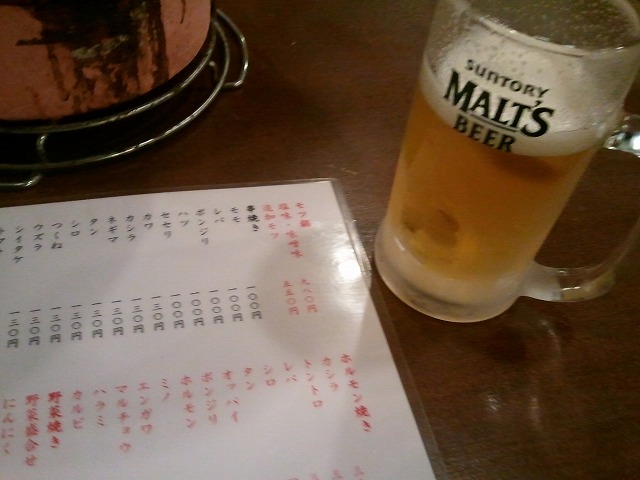 SUNTORY
MALT'S
BEER
モツ鍋 九八〇円
塩味・味噌味
追加モツ 五五〇円
串焼き
モモ 一〇〇円
レバ 一〇〇円
ボンジリ 一〇〇円
ハツ 一〇〇円
セセリ 一〇〇円
カワ 一三〇円
カシラ 一三〇円
ネギマ 一三〇円
タン 一三〇円
シロ 一三〇円
つくね 一三〇円
ウズラ 一三〇円
シイタケ 一三〇円
ホルモン焼き
カシラ
トントロ
レバ
シロ
タン
オッパイ
ボンジリ
ホルモン
ミノ
エンガワ
マルチョウ
ハラミ
カルビ
野菜焼き
野菜盛合せ
にんにく